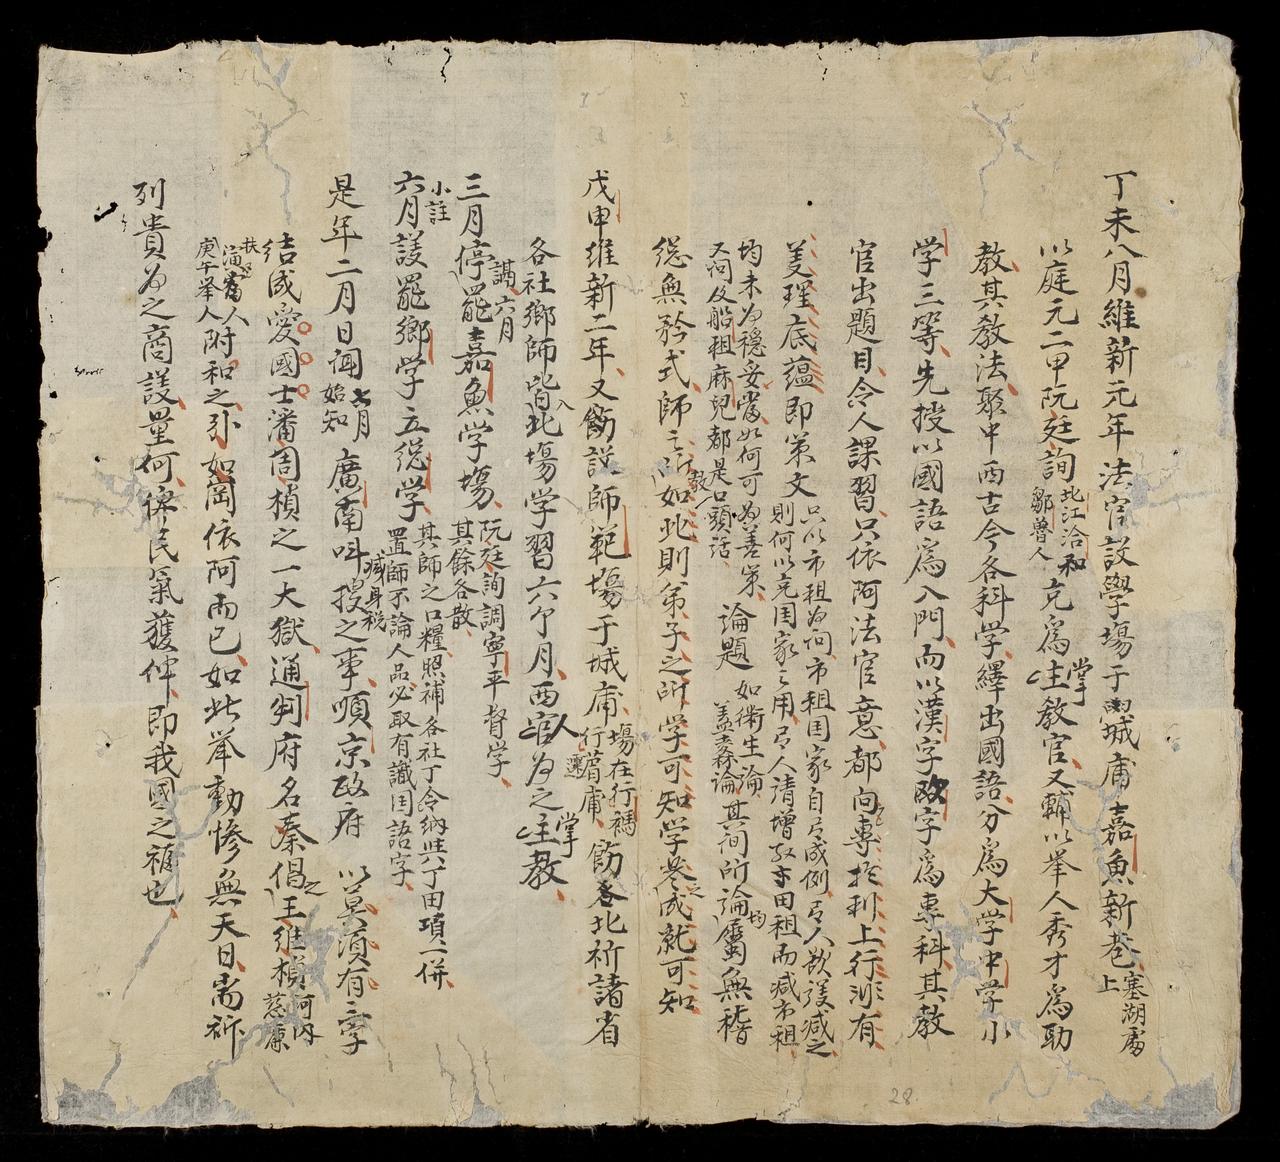 丁未八月維新元年法官設學場于城庸嘉魚新巷上塞湖處
以庭元二甲阮廷詢北江洽和鄒魯人充爲掌教官又輔以举人秀才爲助
教其教法聚中西古今各科学繹出國語分爲大学中学小
学三等先授以國語爲入門而以漢字欧字爲專科其教
官出題目令人課習只依阿法官意都向專於利上行涉有
美理底蕴即策文只以市租为问市租国家自有成例有人欲援减之
則何以充国家之用有人请增取市田租而减市租
均未为穩妥當如何可为善策
又问及船租麻兒都是口頭話
論題如衛生論
盖蚕論其间所論均屬無稽
總無矜式師之所教如此則弟子之所学可知学之成就可知
戊申維新二年又飭設師範場于城庸場在行禡行蒥庸飭各北祈諸省
各社鄉師皆入北場学習六个月西官人为之掌教
三月停罷嘉魚学場阮廷詢調寧平督学
其餘各散
議六月
小註
六月議罷鄉学立總学其師之口糧照補各社丁令納此六丁田項一併
置師不論人品必取有識国語字
是年二月日闻七月始知廣南叫搜之事减身税順京政府以莫須有之字
结成愛國士潘周楨之一大獄通判府名蔡倡之王維楨河内慈廉
庚午举人附和之外如岡依阿而已如此举動惨無天日耑祈
列貴为之商議量何俾民氣獲伸即我國之福也
28